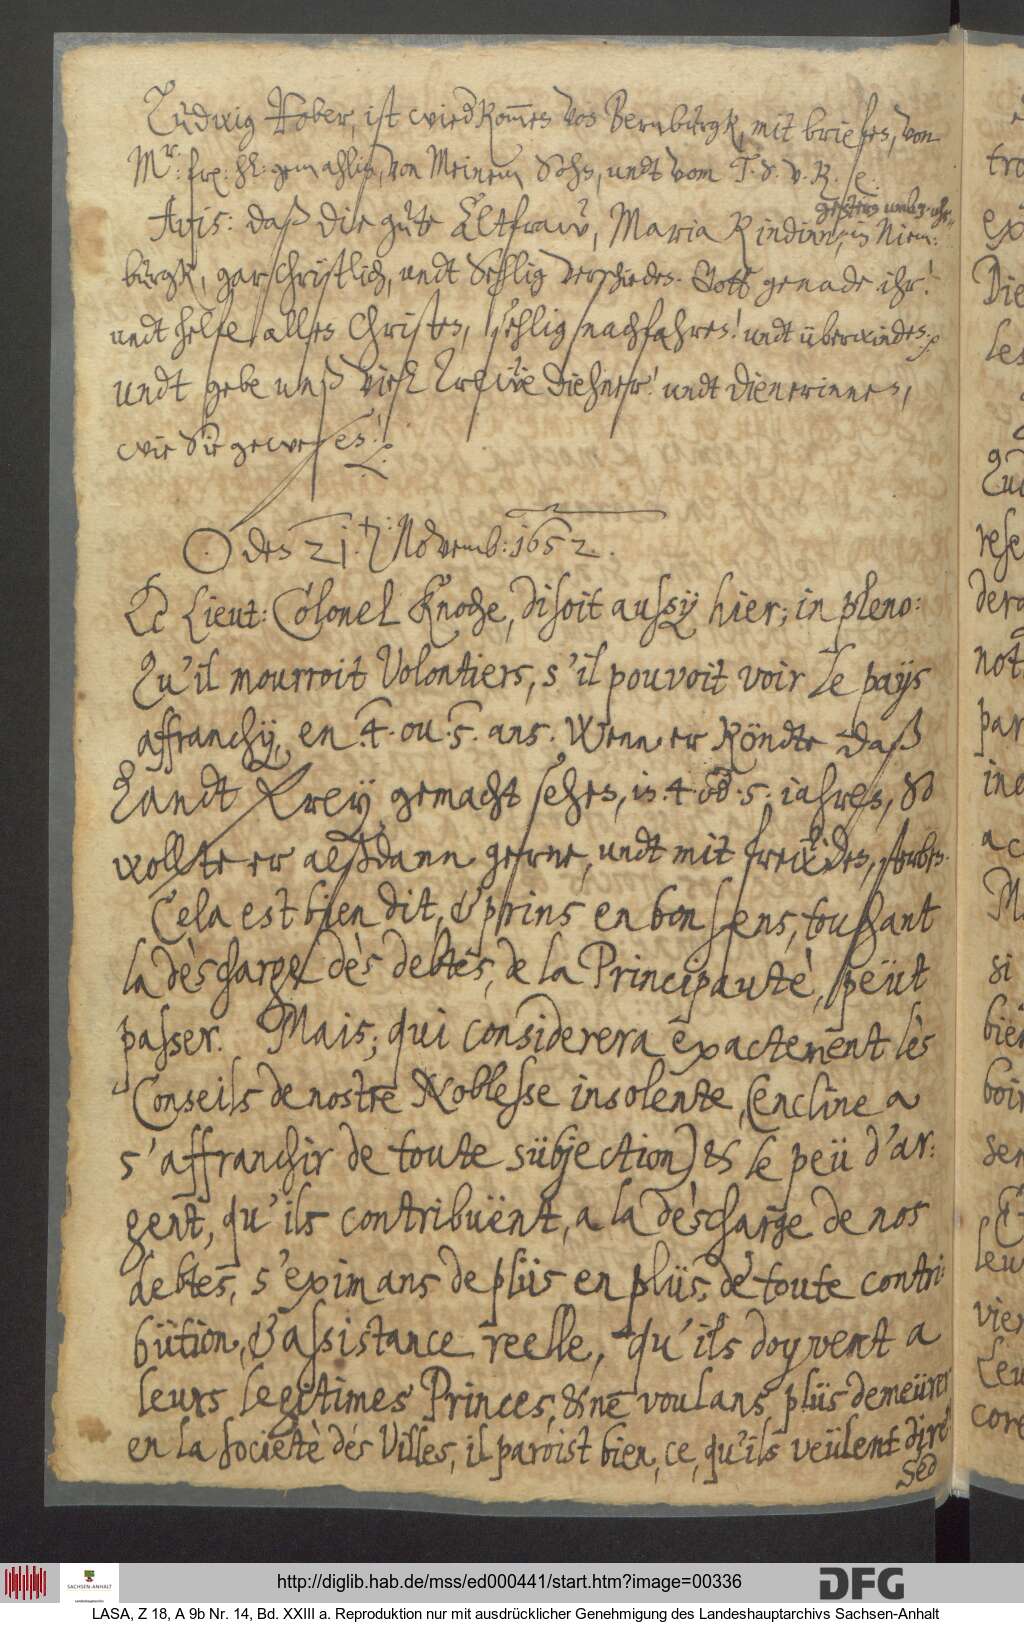 Ludwig Rober, ist wied kom̅en von Bernburgk, mit briefen, von
Mr: frn: hl: gemahlin, von Meinem Sohn, undt vom T. S. v. R. e.
gestern
Avis: daß die gute Altfraw, Maria Rindinn, in Niem-
burgk, gar Christlich, undt Sehlig verschieden. Gott genade ihr!
undt helfe allen Christen, sehlig nachfahren! undt überwinden
undt gebe unß viel Trewe diehner! undt dienerinnen,
wie Sie gewesen!
☉ den 21.ten: Novemb: 1652.
Le Lieut: Colonel Knoche, disoit aussy hier; in pleno:
Qu'il mourroit Volontiers, s'il pouvoit voir le pays
affranchy, en .4. ou .5. ans. Wenn er köndte daß
Landt Frey gemacht sehen, in .4. od .5. iahren, So
wollte er alßdann gerne, undt mit frewden, sterben.
Cela est bien dit, & prins en bon sens, touchant
la dèscharge dès debtes, de la Principautè, peüt
passer. Mais; qui considerera exactement lès
Conseils de nostre Noblesse insolente, (encline a
s'affranchir de toute sübjection) & le peü d'ar:
gent, qu'ils contribuënt, a la dèscharge de nos
debtes, s'eximans de plüs en plüs, de toute contri-
bütion, & assistance reelle, qu'ils doyvent a
leurs legitimes Princes, & ne voulans plüs demeürer
en la societè dés Villes, il paroist bien, ce, qu'ils veülent dire
Sed
http://diglib.hab.de/mss/ed000441/start.htm?image=00336
SACHSEN-ANHALT
DFG
LASA, Z 18, A 9b Nr. 14, Bd. XXIII a. Reproduktion nur mit ausdrücklicher Genehmigung des Landeshauptarchivs Sachsen-Anhalt